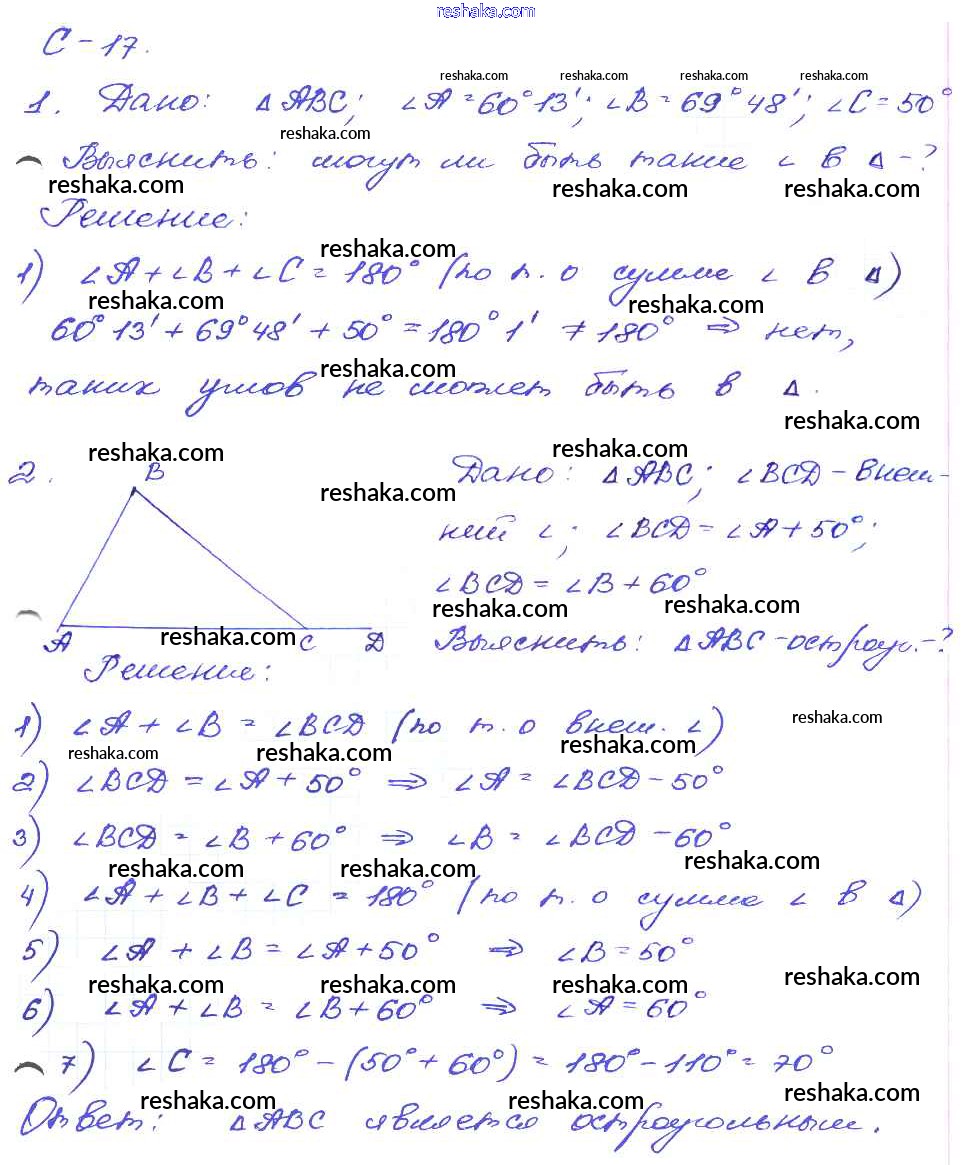 reshaka.com
С-17.
reshaka.com reshaka.com reshaka.com reshaka.com
1. Дано: △ABC; ∠A=60°13'; ∠B=69°48'; ∠C=50°
reshaka.com
Выяснить: могут ли быть такие ∠ в △-?
reshaka.com reshaka.com reshaka.com
Решение:
reshaka.com
1) ∠A+∠B+∠C=180° (по т. о сумме ∠ в △)
reshaka.com reshaka.com
60°13'+69°48'+50°=180°1' ≠180° ⇒ нет,
reshaka.com
таких углов не может быть в △.
reshaka.com
reshaka.com reshaka.com
2. B Дано: △ABC; ∠BCD-внеш-
reshaka.com
ний ∠; ∠BCD=∠A+50°;
∠BCD=∠B+60°
reshaka.com reshaka.com
A reshaka.com C D Выяснить: △ABC-остроуг.-?
Решение:
1) ∠A+∠B=∠BCD (по т. о внеш. ∠) reshaka.com
reshaka.com reshaka.com reshaka.com
2) ∠BCD=∠A+50° ⇒ ∠A=∠BCD-50°
3) ∠BCD=∠B+60° ⇒ ∠B=∠BCD-60°
reshaka.com reshaka.com reshaka.com
4) ∠A+∠B+∠C=180° (по т. о сумме ∠ в △)
5) ∠A+∠B=∠A+50° ⇒ ∠B=50°
reshaka.com reshaka.com reshaka.com reshaka.com
6) ∠A+∠B=∠B+60° ⇒ ∠A=60°
7) ∠C=180°-(50°+60°)=180°-110°=70°
reshaka.com reshaka.com reshaka.com
Ответ: △ABC является остроугольным.